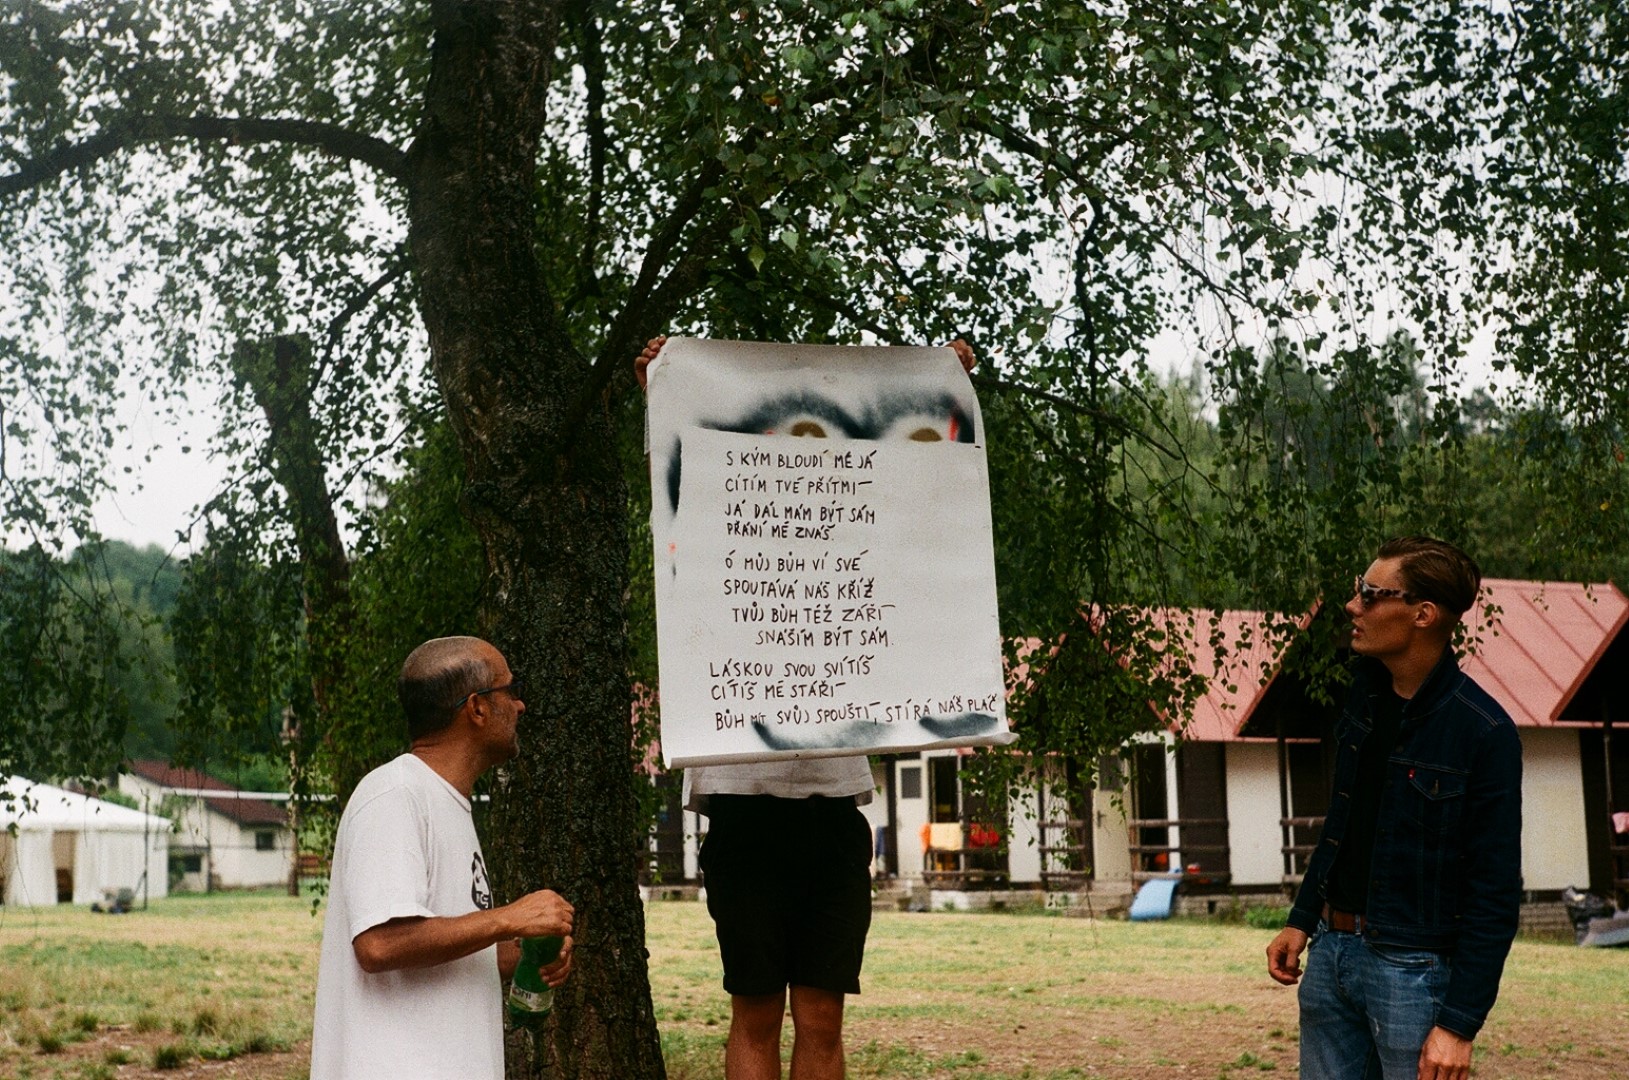 S KÝM BLOUDÍ MÉ JÁ
CÍTÍM TVÉ PŘÍTMÍ
JÁ DÁL MÁM BÝT SÁM
PŘÁNÍ MÉ ZNÁŠ.
Ó MŮJ BŮH VÍ SVÉ
SPOUTÁVÁ NÁŠ KŘÍŽ
TVŮJ BŮH TÉŽ ZÁŘÍ
SNÁŠÍM BÝT SÁM.
LÁSKOU SVOU SVÍTÍŠ
CÍTÍŠ MÉ STÁŘÍ
BŮH MÍT SVŮJ SPOUŠTÍ, STÍRÁ NÁŠ PLÁČ